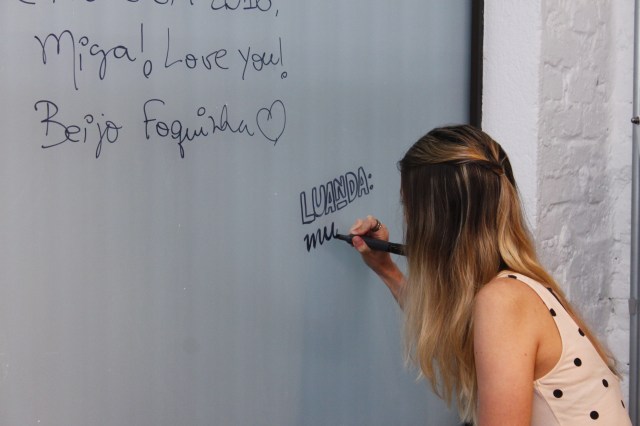 2018,
Miga!, Love you!
Beijo Foquinha♡
LUANDA:
mu